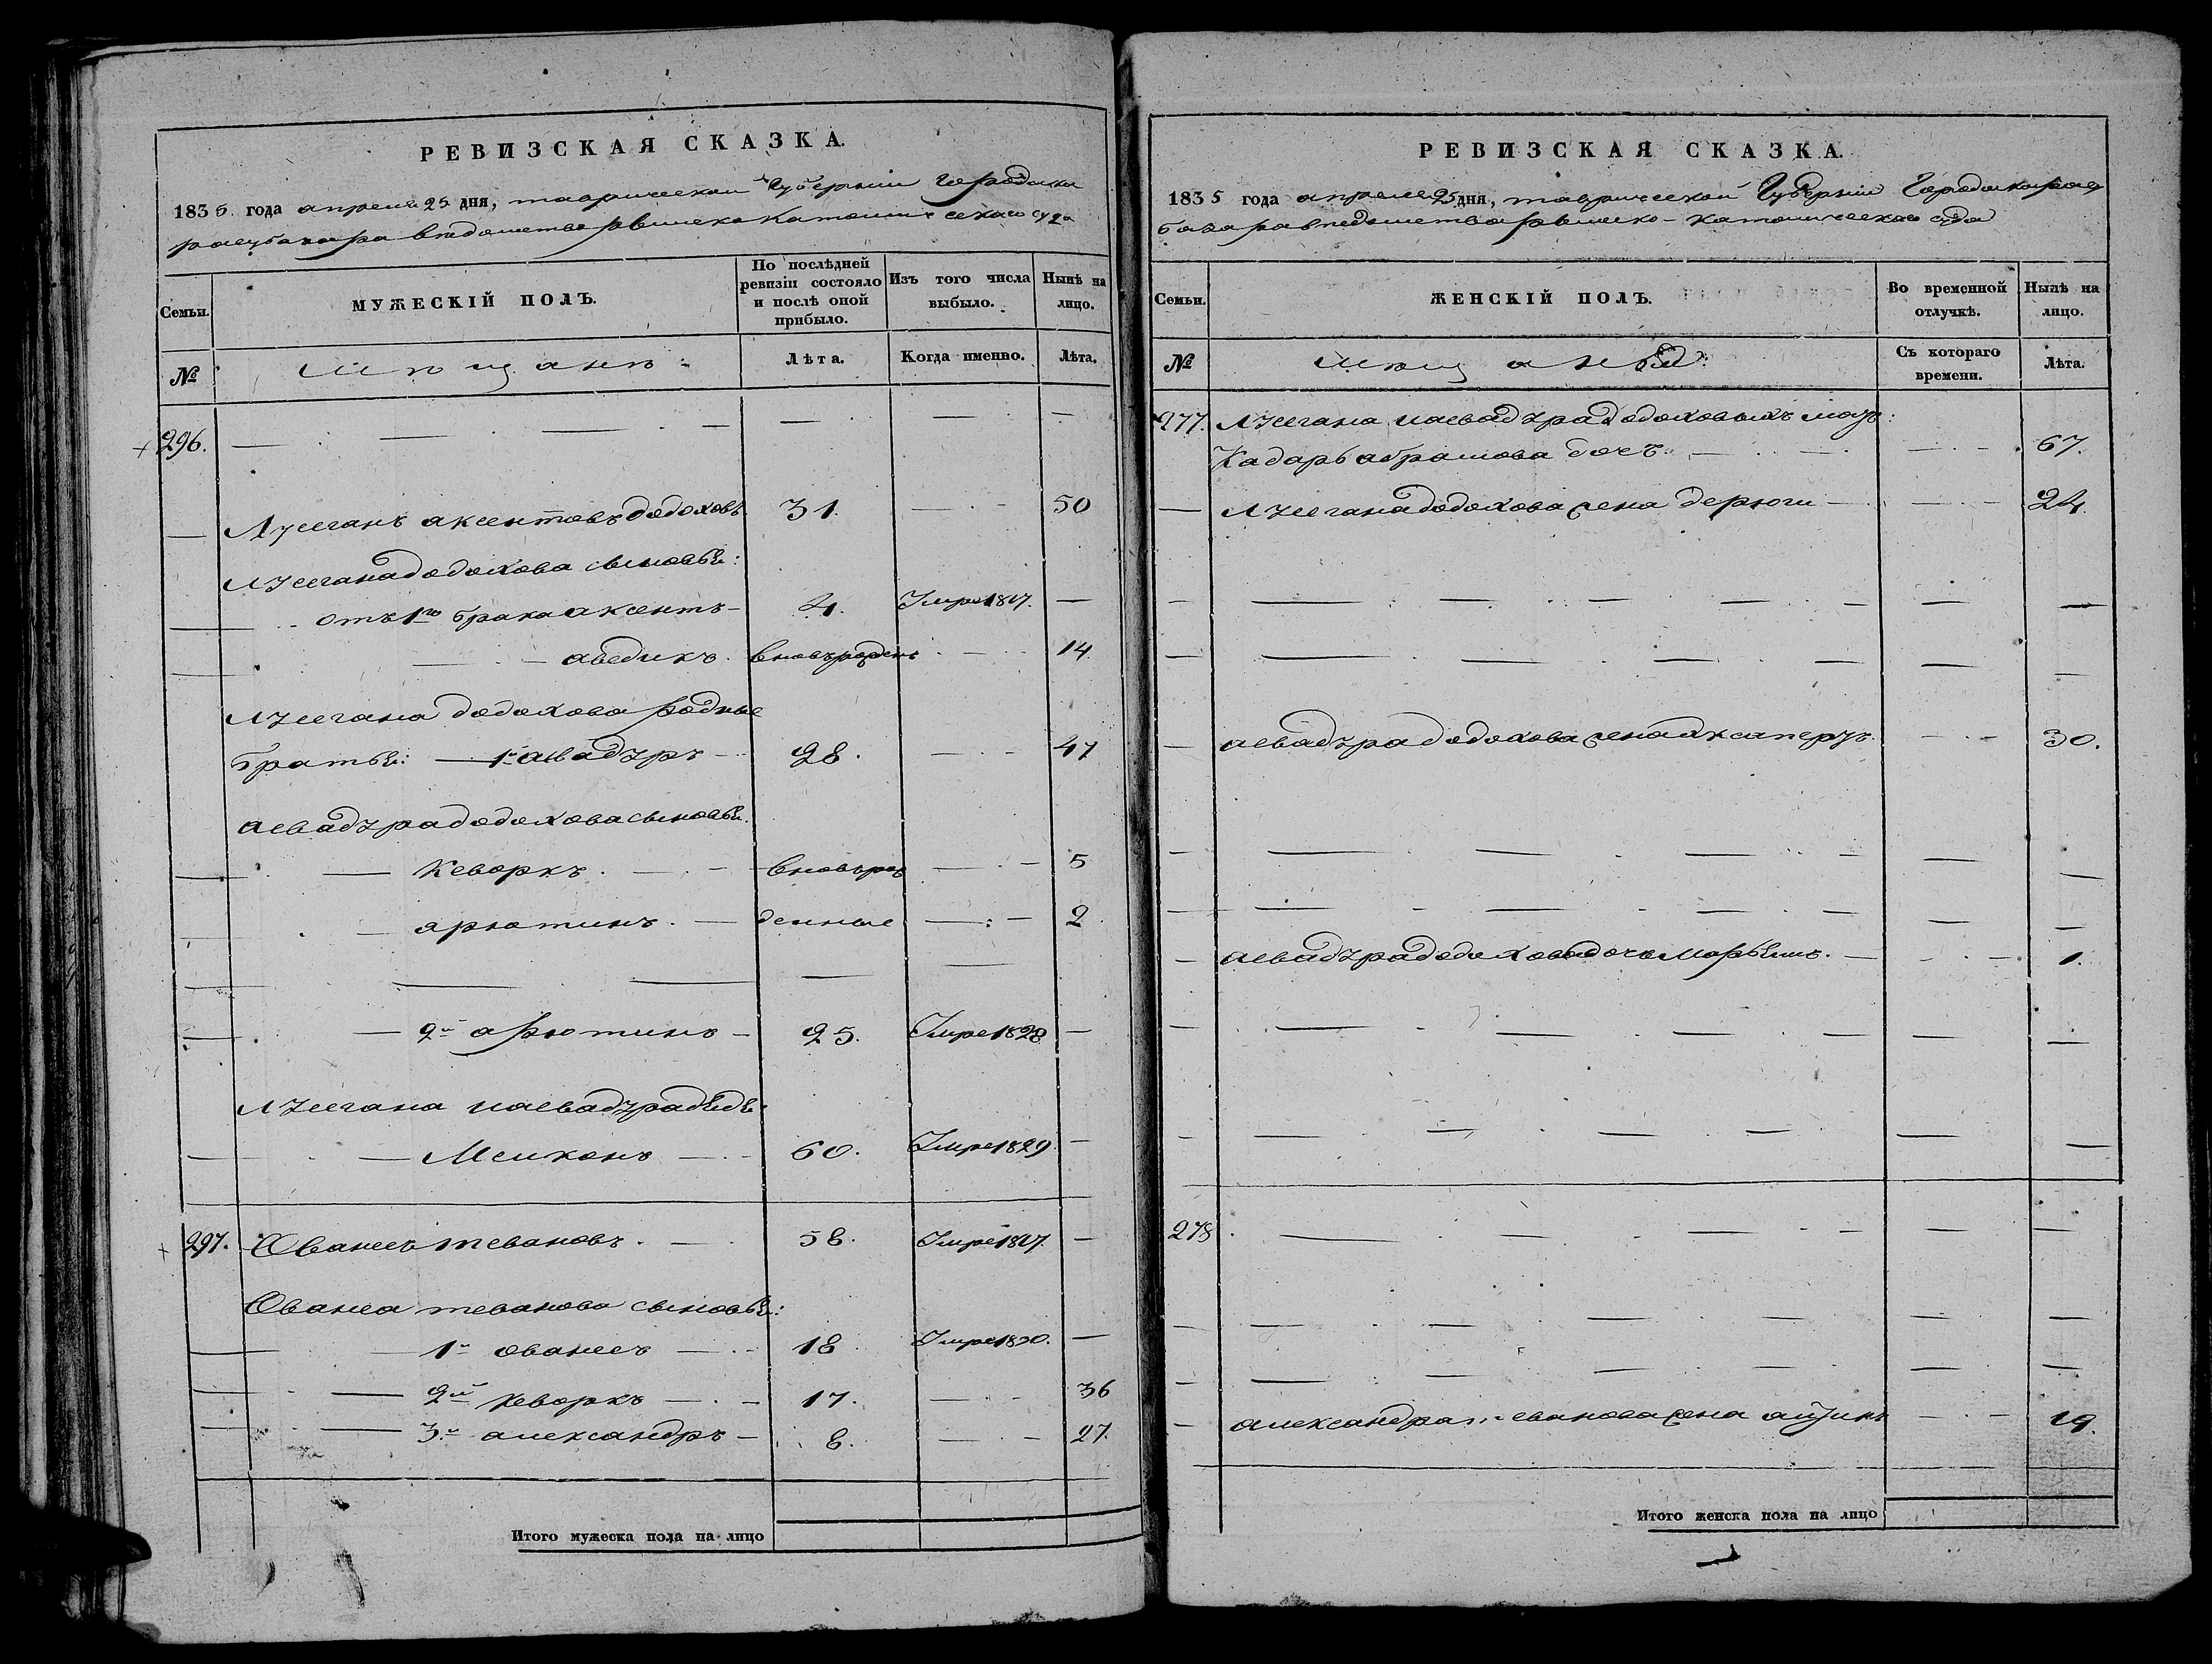 РЕВИЗСКАЯ СКАЗКА.
1835 года апреля 25 дня, таврической Губернии Города ка
расубазара ведомства римско Католического суда
Семьи.
МУЖЕСКІЙ ПОЛЪ.
По послѣдней ревизіи состояло и послѣ оной прибыло.
Изъ того числа выбыло.
Нынѣ на лицо.
№
Мѣщанъ:
Лѣта.
Когда именно.
Лѣта.
296.
аксентовъ додоховъ 31. 50
додохова сыновья:
отъ 1го брака аксентъ 4. Умре 1817.
аведикъ. вновьрожденъ 14
додохова родные
братья: 1й 28. 47
додохова сыновья.
Кеворкъ. вновьрож 5
арютинъ. денные 2
2й арютинъ 25. Умре 1828
дядя
Мелконъ 60. Умре 1829
297. Ованесъ тевановъ. 58. Умре 1817.
Ованеса теванова сыновья:
1й ованесъ 18 Умре 1830.
2й кеворкъ 17. 36
3й александръ 8. 27.
Итого мужеска пола на лицо
РЕВИЗСКАЯ СКАЗКА.
1835 года апреля 25 дня, таврической Губернии Города карасу
базара ведомства римско-католического суда
Семьи.
ЖЕНСКІЙ ПОЛЪ.
Во временной отлучкѣ.
Нынѣ на лицо.
№
Мѣщанъ:
Съ котораго времени.
Лѣта.
277. додоховыхъ мать
Кадарь абрамова дочь. 67.
додохова жена 24.
додохова жена 30.
додохова дочь Марьямъ. 1.
278.
александра теванова жена 19.
Итого женска пола на лицо